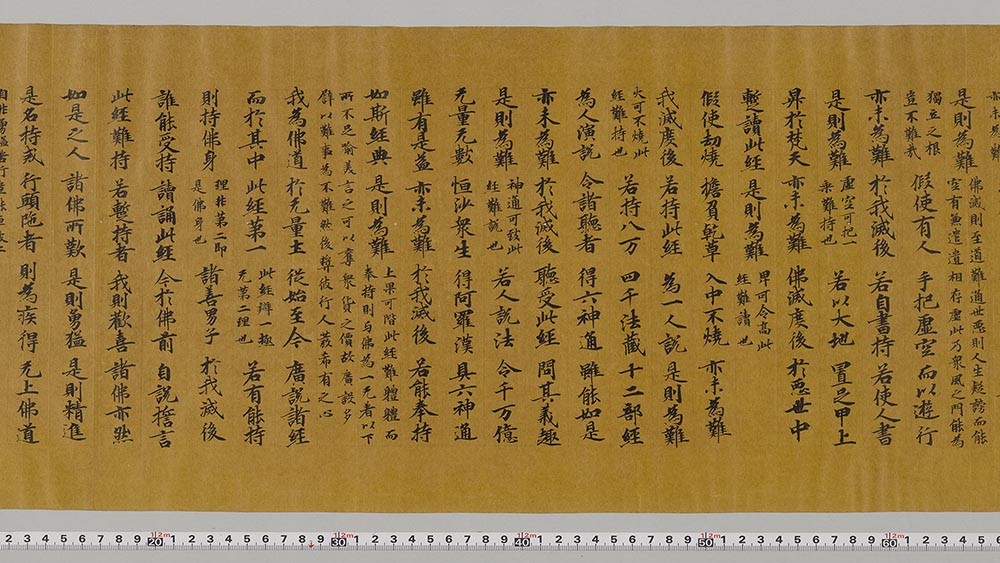 是則為難
佛滅則至道難通世惡則人生疑謗而能
空有無遣遣相存虛此乃衆風之門能為
獨立之根
豈不難哉
假使有人 手把虛空而以遊行
亦未為難 於我滅後 若自書持 若使人書
是則為難
虛空可把一
乘難持也
若以大地 置足甲上
昇於梵天 亦未為難 佛滅度後 於惡世中
暫讀此經 是則為難
甲可令高此
經難讀也
假使劫燒 擔負乾草 入中不燒 亦未為難
我滅度後 若持此經 為一人說 是則為難
火可不燒此
經難持也
若持八万 四千法藏 十二部經
為人演說 令諸聽者 得六神通 雖能如是
亦未為難 於我滅後 聽受此經 問其義趣
是則為難
神通可致此
經難說也
若人說法 令千万億
无量无數 恒沙衆生 得阿羅漢 具六神通
雖有是益 亦未為難 於我滅後 若能奉持
如斯經典 是則為難
上果可階此經難體體而
奉持則与佛為一无者以下
所不足喻美言之可以奪衆貨之價故廣設多
辟以難事為不難然後尊彼行人希有之心
我為佛道 於无量土 從始至今 廣說諸經
而於其中 此經第一
此經辨一極
无第二理也
若有能持
則持佛身
理非第二即
是佛身也
諸善男子 於我滅後
誰能受持 讀誦此經 今於佛前 自說誓言
此經難持 若暫持者 我則歡喜 諸佛亦然
如是之人 諸佛所歎 是則勇猛 是則精進
是名持戒 行頭陁者 則為疾得 无上佛道